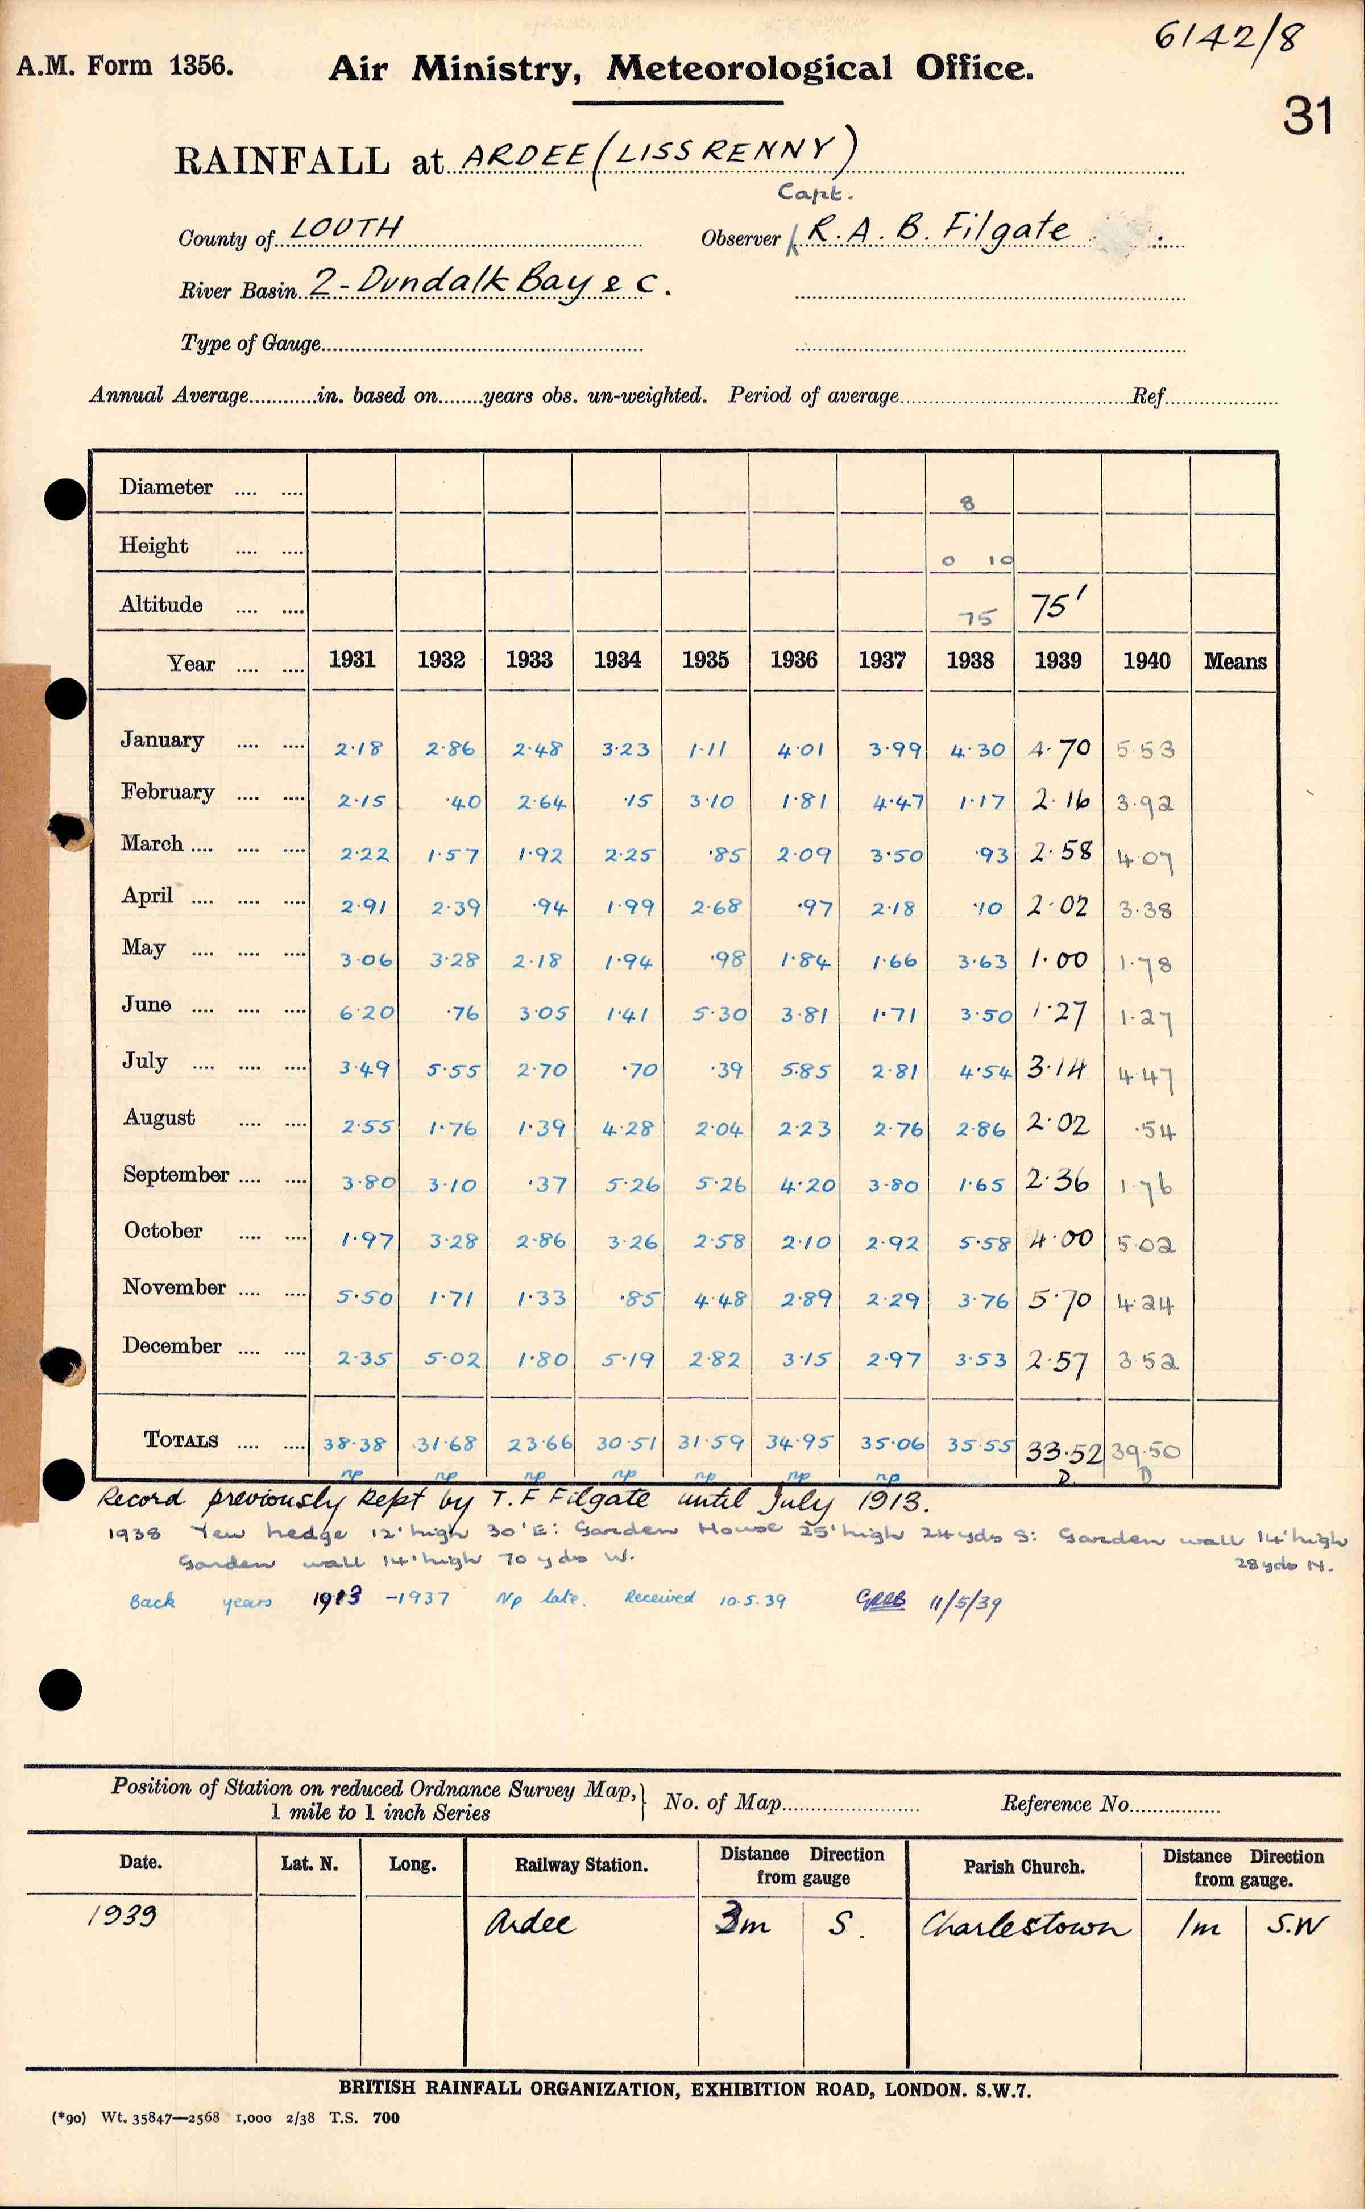 6142/8
A.M. Form 1356. Air Ministry, Meteorological Office.
31
RAINFALL at ARDEE (LISSRENNY)
Capt.
County of LOUTH Observer R. A. B. Filgate
River Basin 2 - Dundalk Bay & C.
Type of Gauge
Annual Average............in. based on........years obs. un-weighted. Period of average Ref
Diameter .... .... 8
Height .... .... 0 10
Altitude .... .... 75 75'
Year .... .... 1931 1932 1933 1934 1935 1936 1937 1938 1939 1940 Means
January .... .... 2·18 2·86 2·48 3·23 1·11 4·01 3·99 4·30 4·70 5·53
February .... .... 2·15 ·40 2·64 ·15 3·10 1·81 4·47 1·17 2·16 3·92
March .... .... .... 2·22 1·57 1·92 2·25 ·85 2·09 3·50 ·93 2·58 4·07
April .... .... .... 2·91 2·39 ·94 1·99 2·68 ·97 2·18 ·10 2·02 3·38
May .... .... .... 3·06 3·28 2·18 1·94 ·98 1·84 1·66 3·63 1·00 1·78
June .... .... .... 6·20 ·76 3·05 1·41 5·30 3·81 1·71 3·50 1·27 1·27
July .... .... .... 3·49 5·55 2·70 ·70 ·39 5·85 2·81 4·54 3·14 4·47
August .... .... 2·55 1·76 1·39 4·28 2·04 2·23 2·76 2·86 2·02 ·54
September .... .... 3·80 3·10 ·37 5·26 5·26 4·20 3·80 1·65 2·36 1·76
October .... .... 1·97 3·28 2·86 3·26 2·58 2·10 2·92 5·58 4·00 5·02
November .... .... 5·50 1·71 1·33 ·85 4·48 2·89 2·29 3·76 5·70 4·24
December .... .... 2·35 5·02 1·80 5·19 2·82 3·15 2·97 3·53 2·57 3·52
TOTALS .... .... 38·38 31·68 23·66 30·51 31·59 34·95 35·06 35·55 33·52 39·50
np np np np np np np D. D
Record previously kept by T. F Filgate until July 1913.
1938 Yew hedge 12' high 30' E: Garden House 25' high 24 yds S: Garden wall 14' high
Garden wall 14' high 70 yds W. 28 yds N.
Back years 1913 - 1937 Np late. Received 10.5.39 11/5/39
Position of Station on reduced Ordnance Survey Map, No. of Map Reference No.
1 mile to 1 inch Series
Date. Lat. N. Long. Railway Station. Distance Direction from gauge Parish Church. Distance Direction from gauge.
1939 Ardee 3m S. Charlestown 1m S.W
BRITISH RAINFALL ORGANIZATION, EXHIBITION ROAD, LONDON. S.W.7.
(*90) Wt. 35847—2568 1,000 2/38 T.S. 700